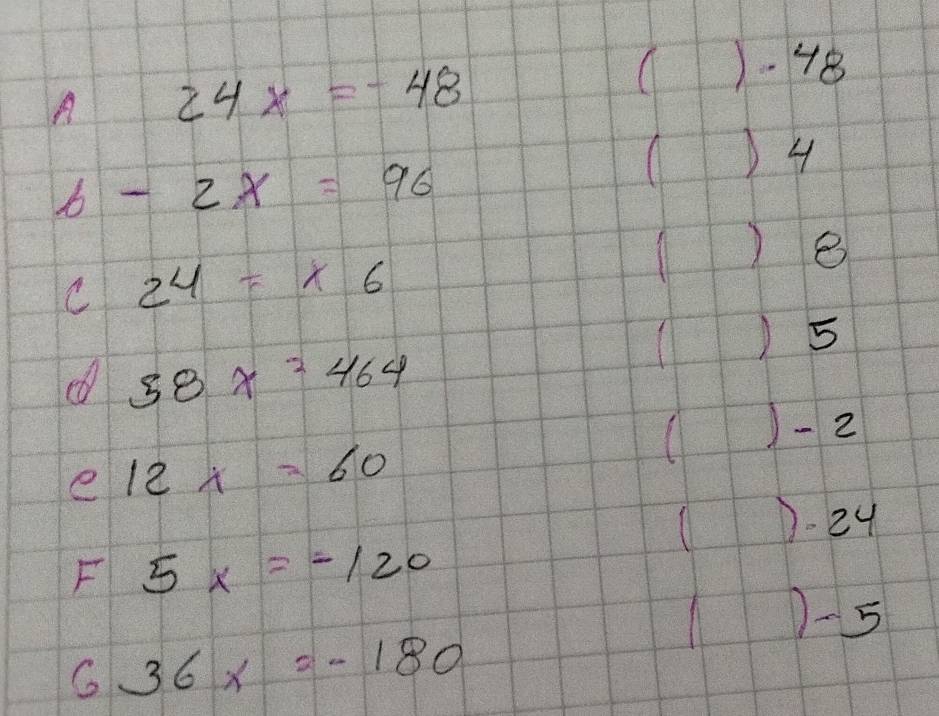 A 24x = -48 ( ) -48
b -2x = 96 ( ) 4
C 24 = x 6 ( ) 8
d 58x = 464 ( ) 5
e 12x = 60 ( ) -2
F 5x = -120 ( ) -24
G 36x = -180 ( ) -5